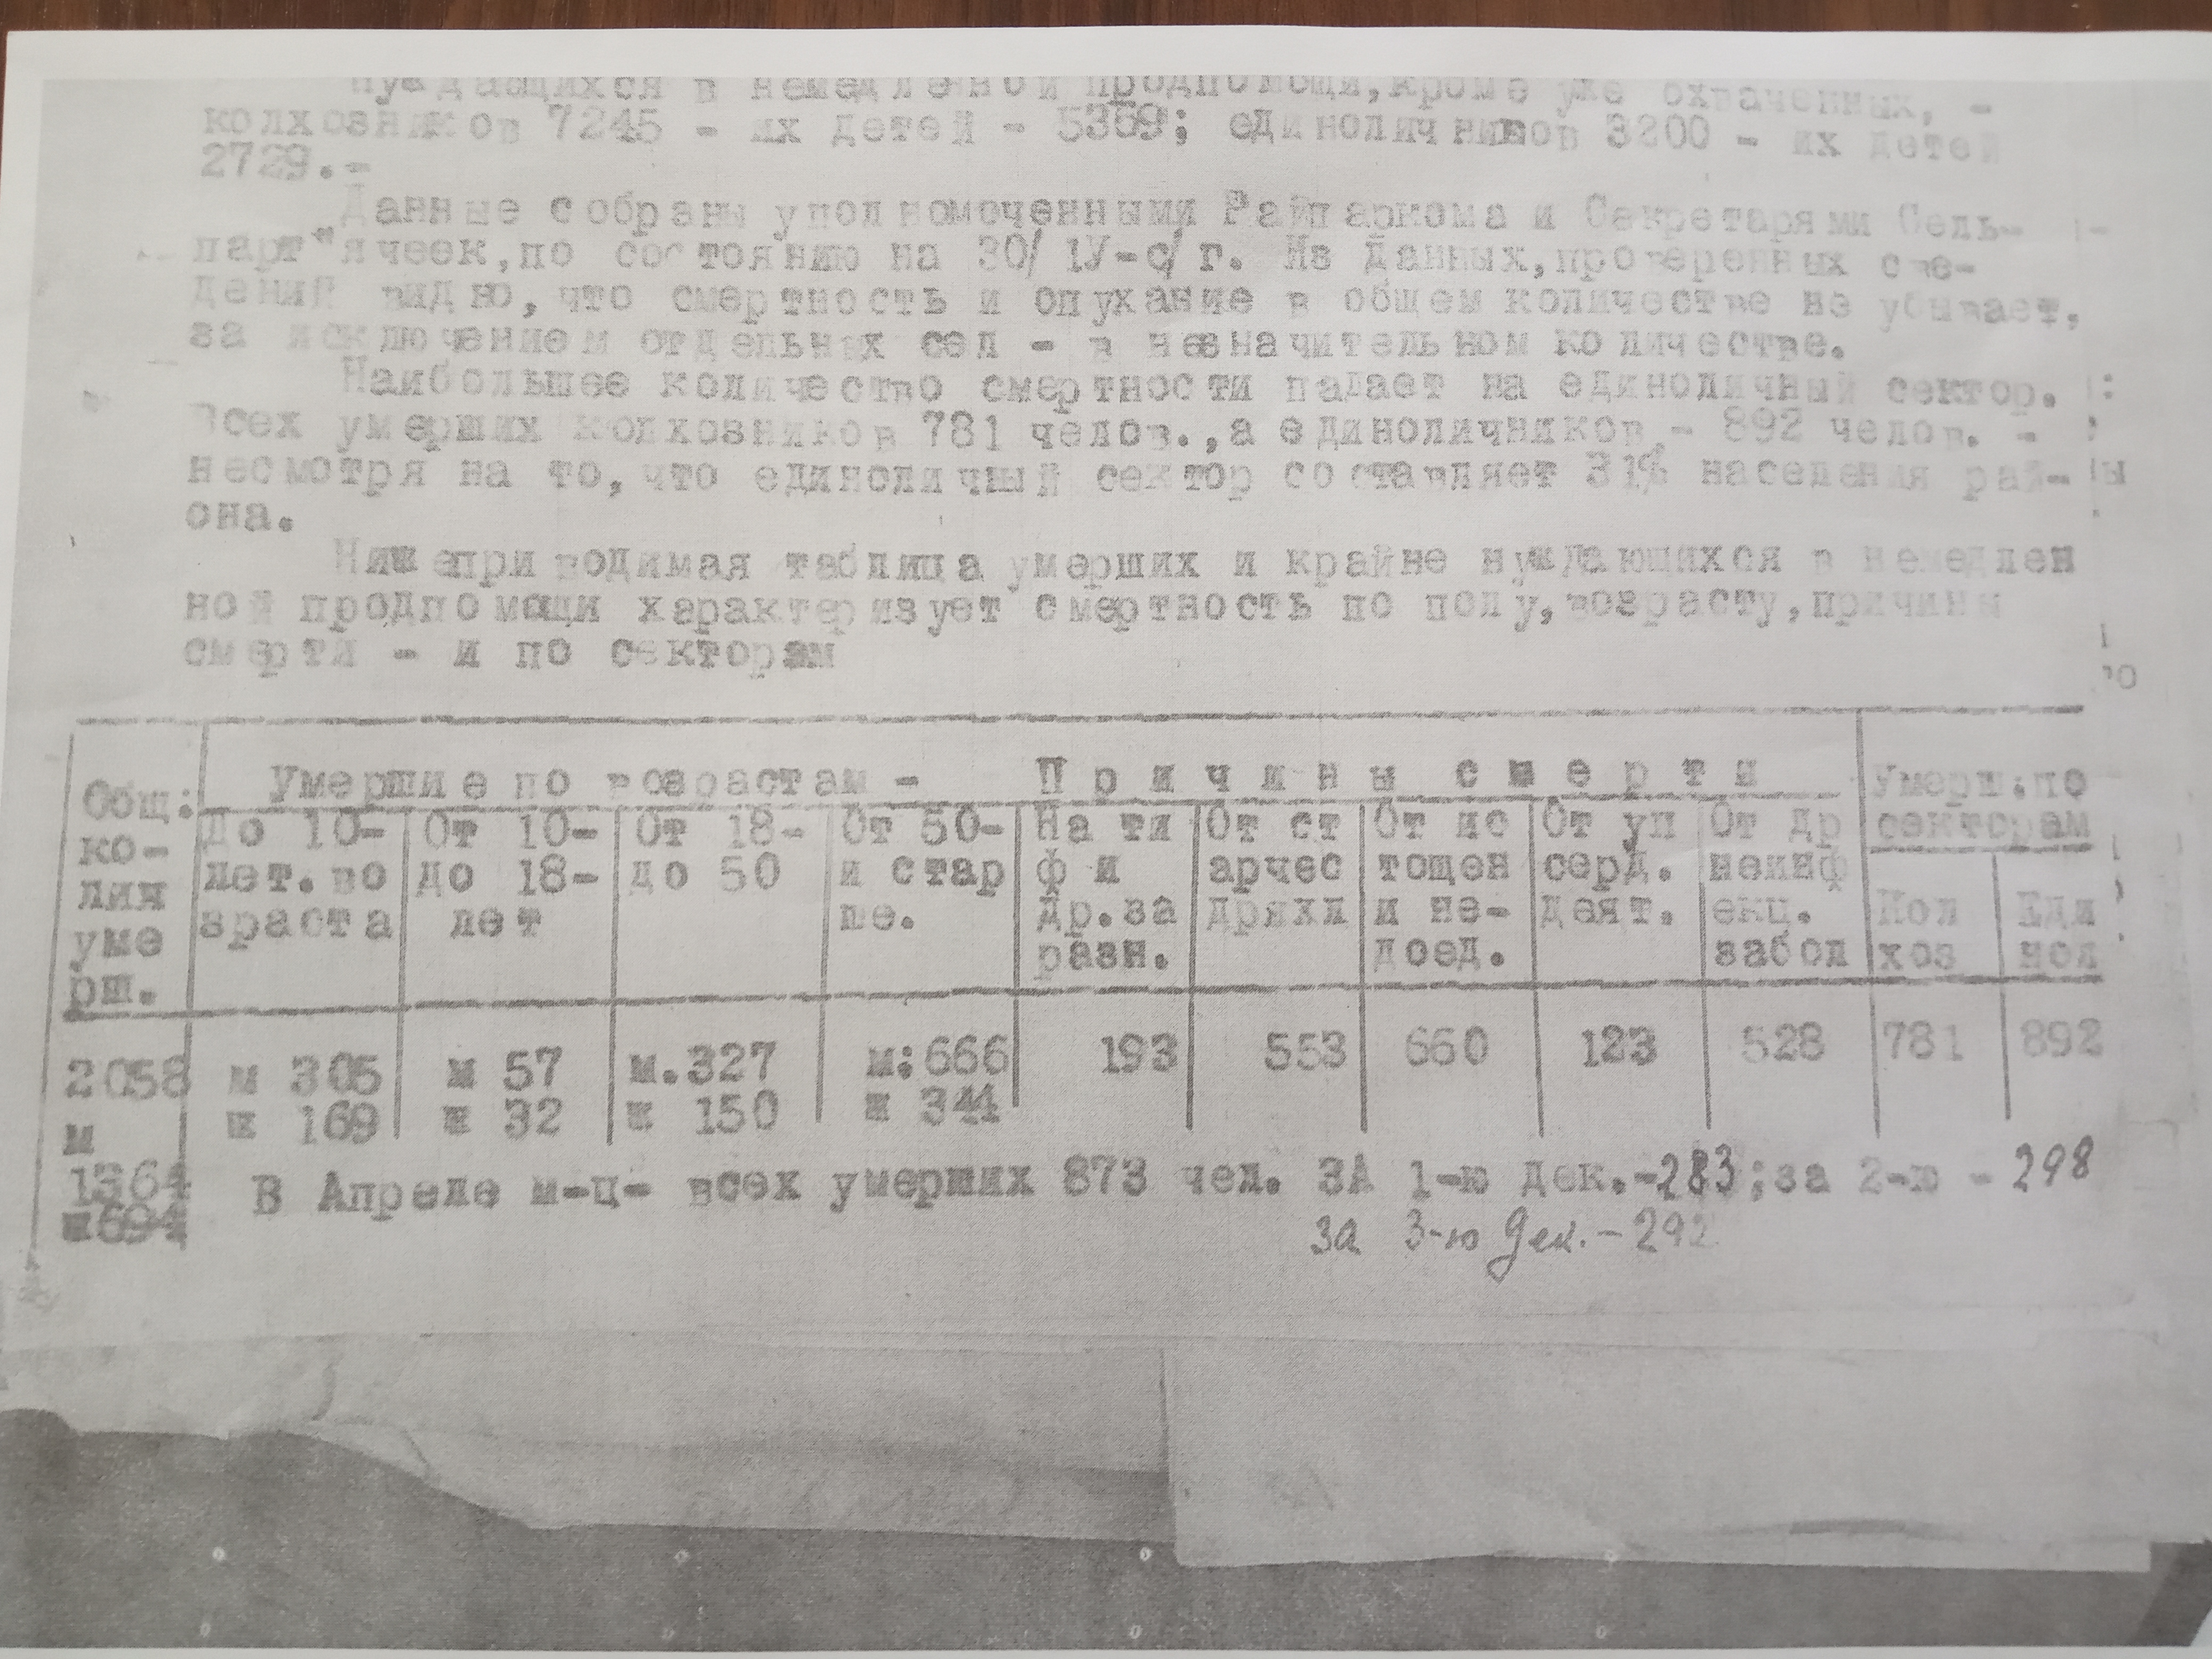 нуждающихся в немедленной продпомощи,кроме уже охваченных, -
колхозников 7245 - их детей - 5359; единоличников 3200 - их детей
2729.-
Данные собраны уполномоченными Райпаркома и Секретарями Сель-
парт"ячеек,по состоянию на 30/ 1У-с/г. Из данных,проверенных све-
дений видно,что смертность и опухание в общем количестве не убывает,
за исключением отдельных сел - в незначительном количестве.
Наибольшее количество смертности падает на единоличный сектор.
Всех умерших колхозников 781 челов.,а единоличников - 892 челов. -
несмотря на то,что единоличный сектор составляет 31% населения рай-
она.
Нижеприводимая таблица умерших и крайне нуждающихся в немедлен
ной продпомощи характеризует смертность по полу,возрасту,причины
смерти - и по секторам
Общ: ко- личн уме рш.
Умершие по возрастам -
Причины смерти
Умерш.по секторам
До 10- лет.во зраста
От 10- до 18- лет
От 18- до 50
От 50- и стар ше.
На ти ф и др.за разн.
От ст арчес дряхл
От ис тощен и не- доед.
От уп серд. деят.
От др неинф екц. забол
Кол хоз
Еди нол
2058 м 305 м 57 м.327 м:666 193 553 660 123 528 781 892
м ж 169 ж 32 ж 150 ж 344
1364
ж694
В Апреле м-ц- всех умерших 873 чел. ЗА 1-ю дек.-283;за 2-ю - 298
за 3-ю дек. - 292